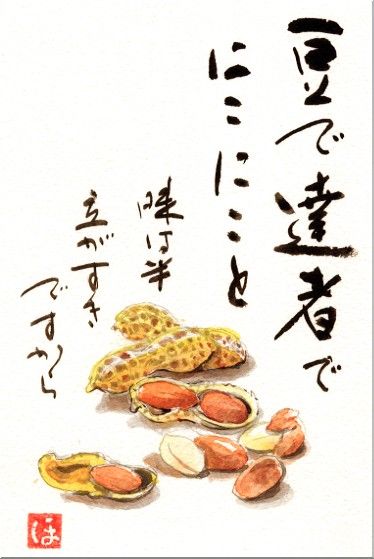 豆で達者で
にこにこと
味は半
立がすき
ですから
ほ